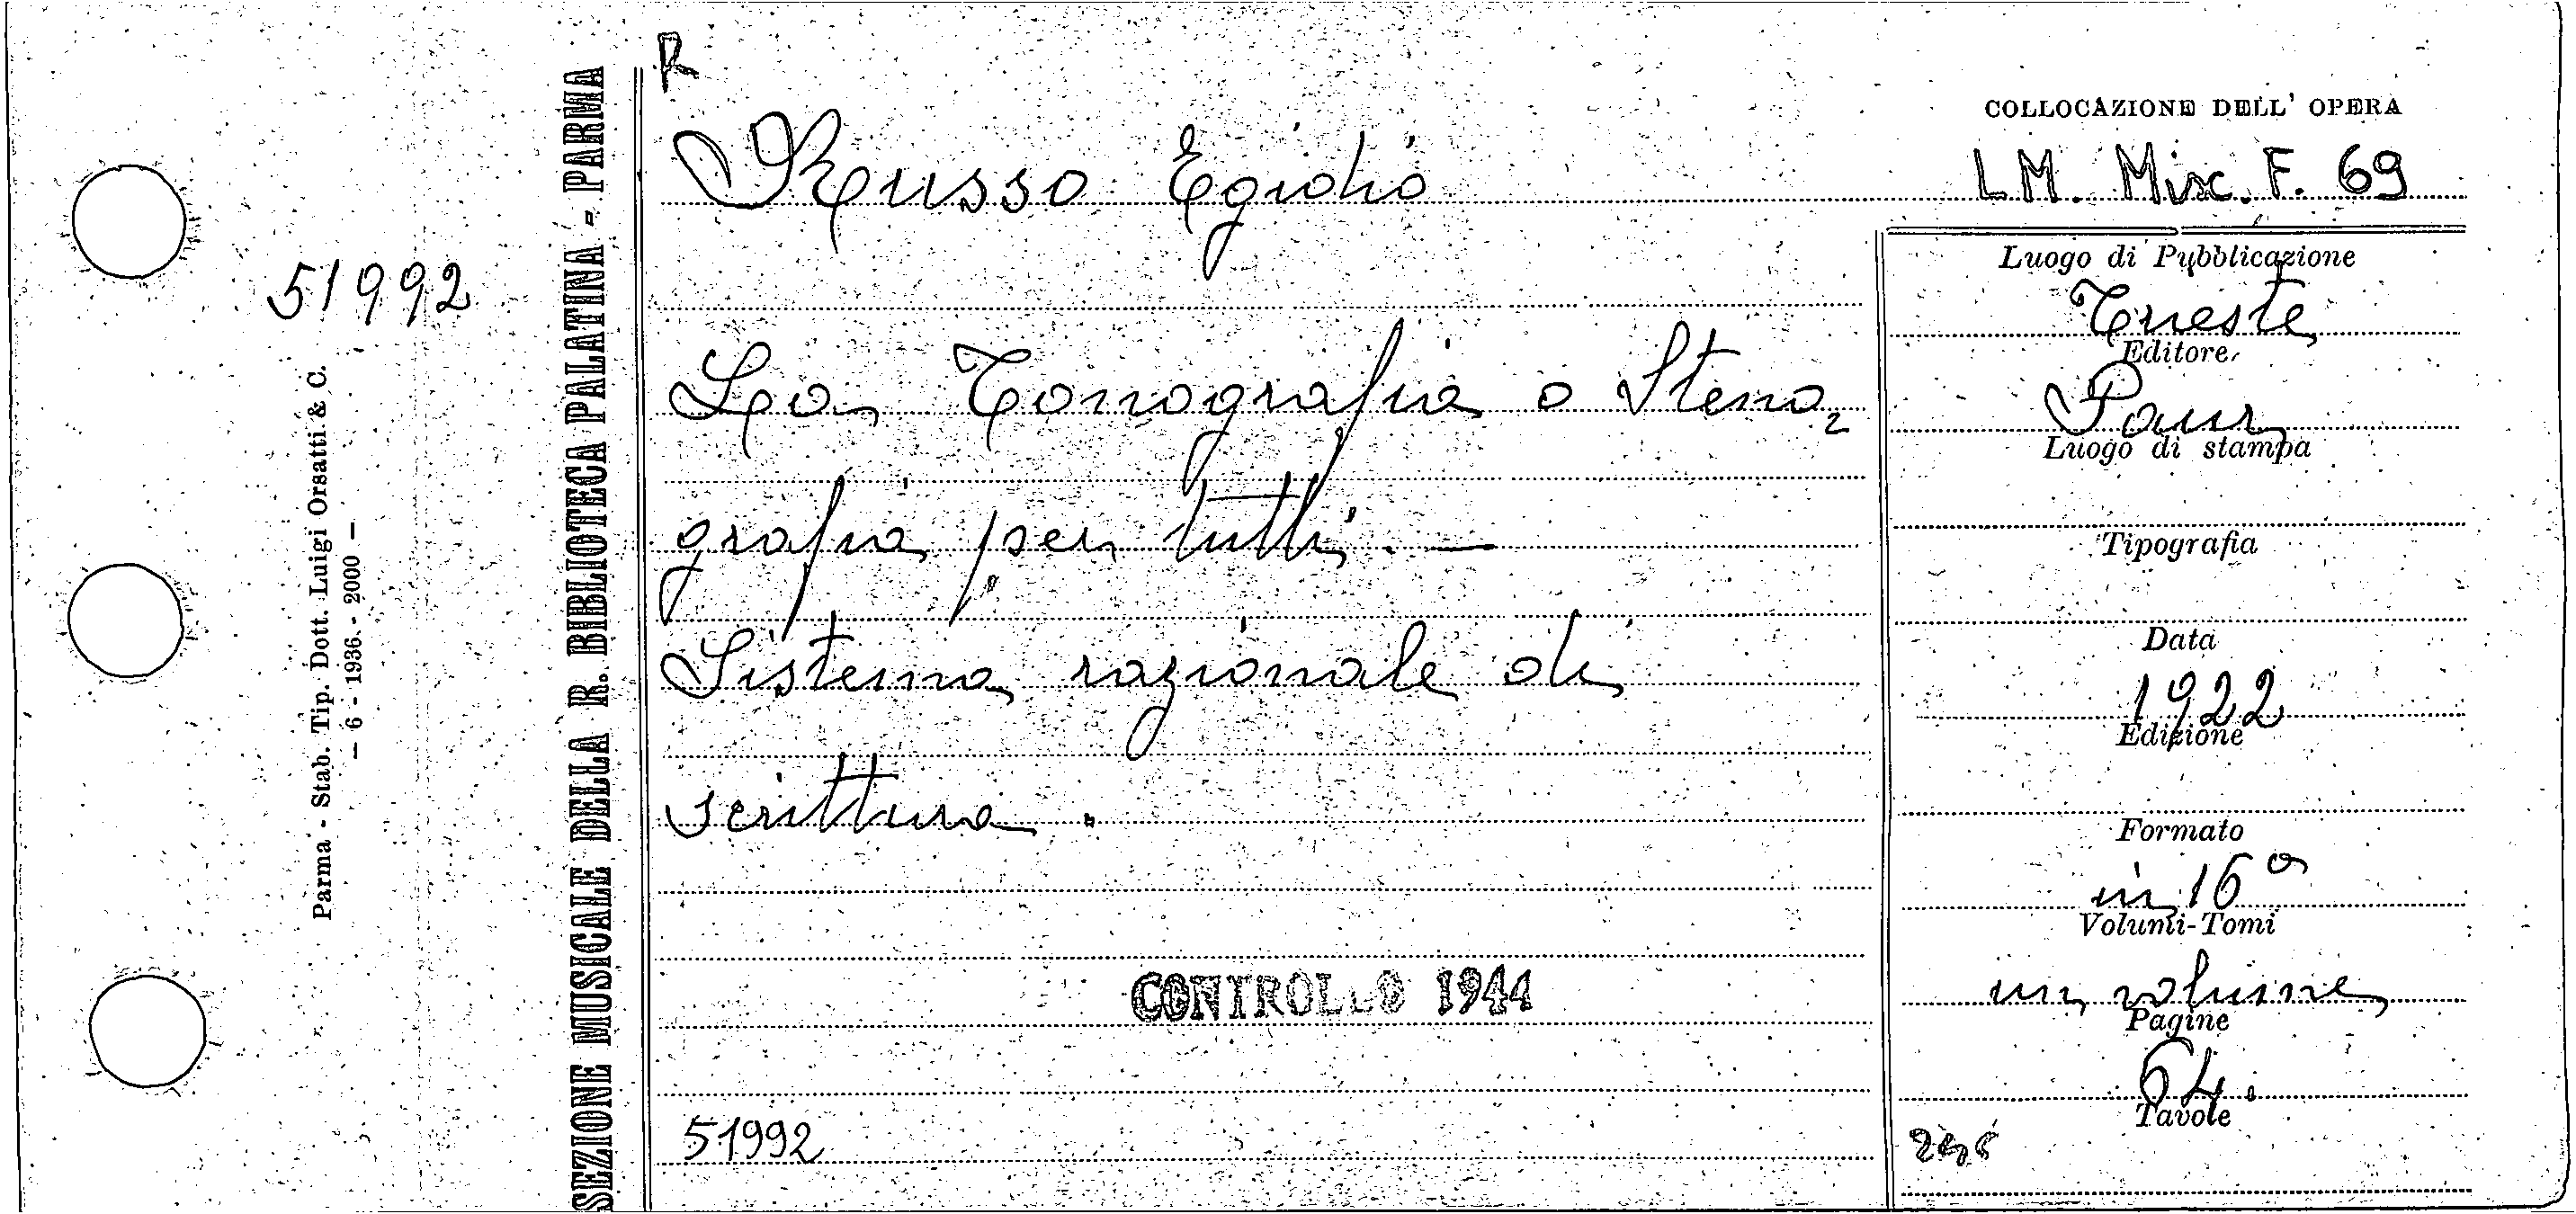 R
Russo Egidio
COLLOCAZIONE DELL' OPERA
LM. Misc. F. 69
51992
Parma - Stab. Tip. Dott. Luigi Orsatti & C.
— 6 - 1936. - 2000 —
SEZIONE MUSICALE DELLA R. BIBLIOTECA PALATINA - PARMA
La Tonografia o Steno=
grafia per tutti. —
Sistema razionale di
scrittura.
CONTROLLO 1944
51992
Luogo di Pubblicazione
Trieste
Editore
Luogo di stampa
Tipografia
Data
1922
Edizione
Formato
in 16°
Volumi-Tomi
un volume
Pagine
64.
Tavole